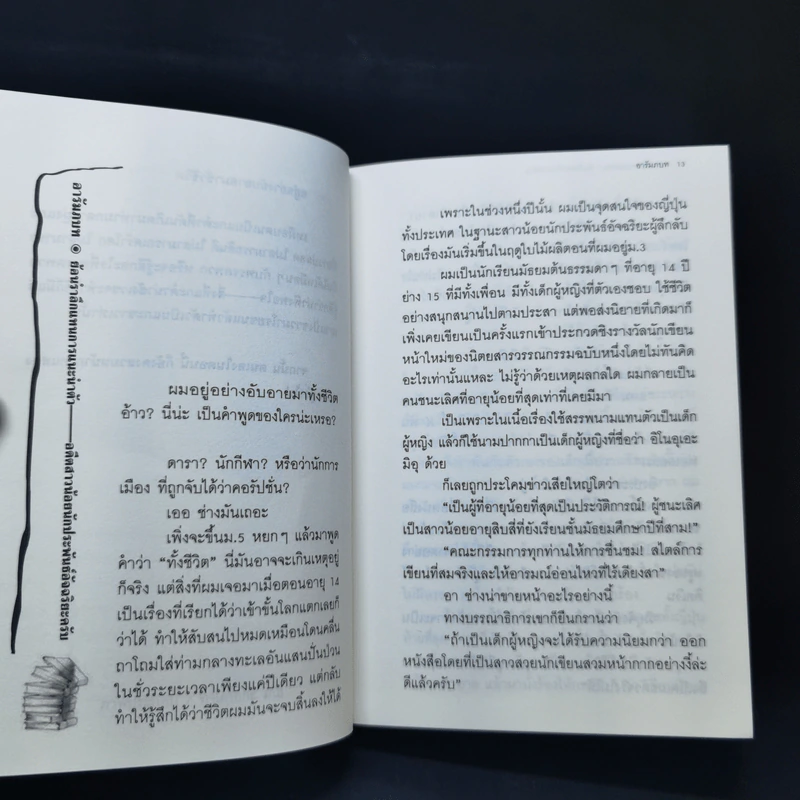 อารัมภบท ๏ ย้อนรำลึกแทนการแนะนำตัว——อดีตสาวน้อยนักประพันธ์อัจฉริยะครับ
ผมอยู่อย่างอับอายมาทั้งชีวิต
อ้าว? นี่น่ะ เป็นคำพูดของใครน่ะเหรอ?
ดารา? นักกีฬา? หรือว่านักการ
เมือง ที่ถูกจับได้ว่าคอรัปชั่น?
เออ ช่างมันเถอะ
เพิ่งจะขึ้นม.5 หยกๆ แล้วมาพูด
คำว่า “ทั้งชีวิต” นี่มันอาจจะเกินเหตุอยู่
ก็จริง แต่สิ่งที่ผมเจอมาเมื่อตอนอายุ 14
เป็นเรื่องที่เรียกได้ว่าเข้าขั้นโลกแตกเลยก็
ว่าได้ ทำให้สับสนไปหมดเหมือนโดนคลื่น
ถาโถมใส่ท่ามกลางทะเลอันแสนปั่นป่วน
ในชั่วระยะเวลาเพียงแค่ปีเดียว แต่กลับ
ทำให้รู้สึกได้ว่าชีวิตผมมันจะจบสิ้นลงให้ได้
อารัมภบท 13
เพราะในช่วงหนึ่งปีนั้น ผมเป็นจุดสนใจของญี่ปุ่น
ทั้งประเทศ ในฐานะสาวน้อยนักประพันธ์อัจฉริยะผู้ลึกลับ
โดยเรื่องมันเริ่มขึ้นในฤดูใบไม้ผลิตอนที่ผมอยู่ม.3
ผมเป็นนักเรียนมัธยมต้นธรรมดาๆ ที่อายุ 14 ปี
ย่าง 15 ที่มีทั้งเพื่อน มีทั้งเด็กผู้หญิงที่ตัวเองชอบ ใช้ชีวิต
อย่างสนุกสนานไปตามประสา แต่พอส่งนิยายที่เกิดมาก็
เพิ่งเคยเขียนเป็นครั้งแรกเข้าประกวดชิงรางวัลนักเขียน
หน้าใหม่ของนิตยสารวรรณกรรมฉบับหนึ่งโดยไม่ทันคิด
อะไรเท่านั้นแหละ ไม่รู้ว่าด้วยเหตุผลกลใด ผมกลายเป็น
คนชนะเลิศที่อายุน้อยที่สุดเท่าที่เคยมีมา
เป็นเพราะในเนื้อเรื่องใช้สรรพนามแทนตัวเป็นเด็ก
ผู้หญิง แล้วก็ใช้นามปากกาเป็นเด็กผู้หญิงที่ชื่อว่า อิโนอุเอะ
มิอุ ด้วย
ก็เลยถูกประโคมข่าวเสียใหญ่โตว่า
“เป็นผู้ที่อายุน้อยที่สุดเป็นประวัติการณ์! ผู้ชนะเลิศ
เป็นสาวน้อยอายุสิบสี่ที่ยังเรียนชั้นมัธยมศึกษาปีที่สาม!”
“คณะกรรมการทุกท่านให้การชื่นชม! สไตล์การ
เขียนที่สมจริงและให้อารมณ์อ่อนไหวที่ไร้เดียงสา”
อา ช่างน่าขายหน้าอะไรอย่างนี้
ทางบรรณาธิการเขาก็ยืนกรานว่า
“ถ้าเป็นเด็กผู้หญิงจะได้รับความนิยมกว่า ออก
หนังสือโดยที่เป็นสาวสวยนักเขียนสวมหน้ากากอย่างงี้ล่ะ
ดีแล้วครับ”